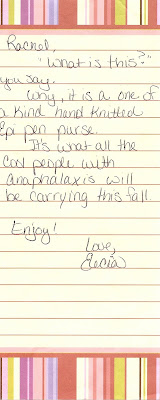 Rachel,
"What is this?"
you say.
Why, it is a one of
a kind hand knitted
Epi pen purse.
It's what all the
cool people with
anaphalaxis will
be carrying this fall.
Enjoy!
Love,